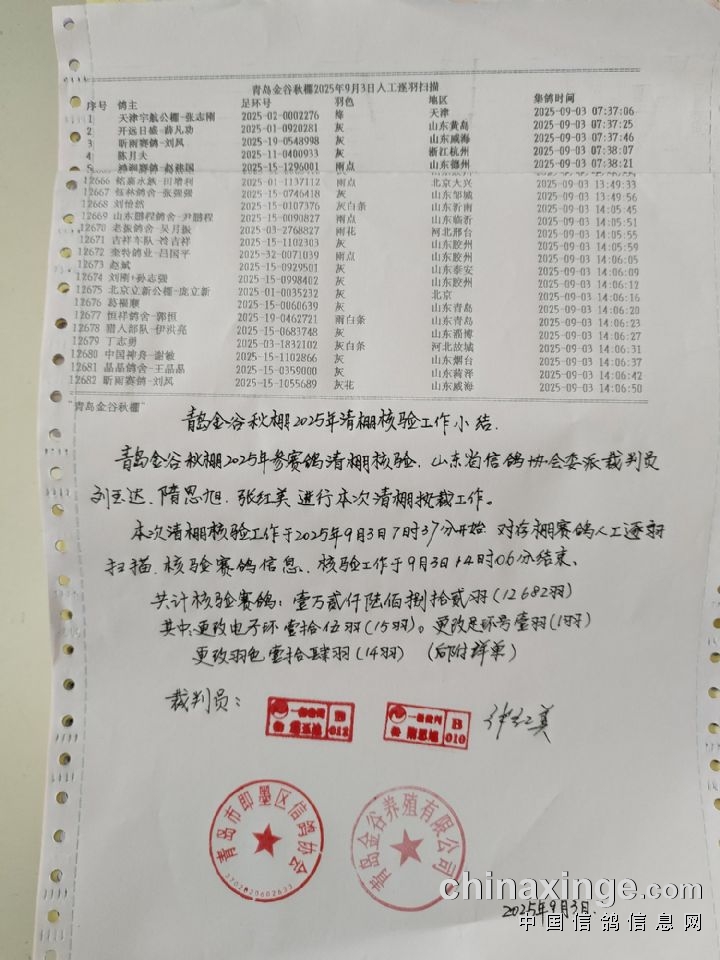 青岛金谷秋棚2025年9月3日人工逐羽扫描
序号 鸽主 足环号 羽色 地区 集鸽时间
1 天津宇航公棚-张志刚 2025-02-0002276 绛 天津 2025-09-03 07:37:06
2 开远日盛-薛凡功 2025-01-0920281 灰 山东黄岛 2025-09-03 07:37:25
3 昕雨赛鸽-刘风 2025-19-0548998 灰 山东威海 2025-09-03 07:37:46
4 陈月夫 2025-11-0400933 灰 浙江杭州 2025-09-03 07:38:07
5 2025-15-1296001 雨点 山东德州 2025-09-03 07:38:21
12666 铭嘉水族-田增利 2025-01-1137112 雨点 北京大兴 2025-09-03 13:49:33
12667 钰林鸽舍-张强强 2025-15-0746418 灰 山东邹城 2025-09-03 13:49:56
12668 刘怡然 2025-15-0107376 灰白条 山东沂南 2025-09-03 14:05:45
12669 山东鹏程鸽舍-尹鹏程 2025-15-0090827 雨点 山东临沂 2025-09-03 14:05:51
12670 老振鸽舍-吴月振 2025-03-2768827 雨花 河北邢台 2025-09-03 14:05:55
12671 吉祥车队-冷吉祥 2025-15-1102303 灰 山东胶州 2025-09-03 14:05:59
12672 奎特鸽业-吕国平 2025-32-0071039 雨点 山东胶州 2025-09-03 14:06:05
12673 赵斌 2025-15-0929501 灰 山东泰安 2025-09-03 14:06:09
12674 刘刚+孙志强 2025-15-0998402 灰 山东胶州 2025-09-03 14:06:12
12675 北京立新公棚-庞立新 2025-01-0035232 灰 北京 2025-09-03 14:06:16
12676 葛福顺 2025-15-0060639 灰 山东青岛 2025-09-03 14:06:20
12677 恒祥鸽舍-郭恒 2025-19-0462721 雨白条 山东青岛 2025-09-03 14:06:23
12678 猎人部队-伊洪亮 2025-15-0683748 灰 山东淄博 2025-09-03 14:06:27
12679 丁志勇 2025-03-1832102 灰白条 河北故城 2025-09-03 14:06:31
12680 中国神舟-谢敏 2025-15-1102866 灰 山东烟台 2025-09-03 14:06:37
12681 晶晶鸽舍-王晶晶 2025-15-0359000 灰 山东菏泽 2025-09-03 14:06:42
12682 昕雨赛鸽-刘风 2025-15-1055689 灰花 山东威海 2025-09-03 14:06:50
"青岛金谷秋棚"
青岛金谷秋棚2025年清棚核验工作小结.
青岛金谷秋棚2025年参赛鸽清棚核验、山东省信鸽协会委派裁判员
刘玉达、隋思旭、张红美进行本次清棚执裁工作。
本次清棚核验工作于2025年9月3日7时37分开始 对存棚赛鸽人工逐羽
扫描、核验赛鸽信息、核验工作于9月3日14时06分结束、
共计核验赛鸽：壹万贰仟陆佰捌拾贰羽(12682羽)
其中:更改电子环壹拾伍羽(15羽)。更改足环号壹羽(1羽)
更改羽色壹拾肆羽(14羽) (后附详单)
裁判员：
B 012
B 010
张红美
青岛市即墨区信鸽协会
3702820602633
青岛金谷养殖有限公司
2025年9月3日.
chinaxinge.com
中国信鸽信息网